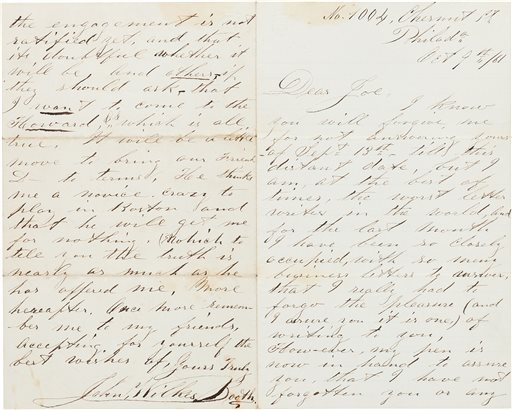 No. 1004, Chesnut St
Philada
Oct 9th/61
Dear Joe,
I know
you will forgive me
for not answering yours
of Sept 13th till this
distant date, but I
am, at the best of
times, the worst letter
writer in the world, and
for the last month
I have been so closely
occupied, with so many
business letters to answer,
that I really had to
forgo the pleasure (and
I assure you it is one) of
writing to you,
However, my pen is
now in hand to assure
you, that I have not
forgotten you or any
the engagement is not
ratified yet, and that
its doubtful whether it
will be and others, if
they should ask, that
I want to come to the
Howard, which is all
true. It will be a
move to bring our friend
D— to terms, He thinks
me a novice crazy to
play in Boston and
that he will get me
for nothing. (which to
tell you the truth is
nearly as much as he
has offered me, More
hereafter, Once more remem-
ber me to my friends,
accepting for yourself the
best wishes of, Yours Truly
John Wilkes Booth,